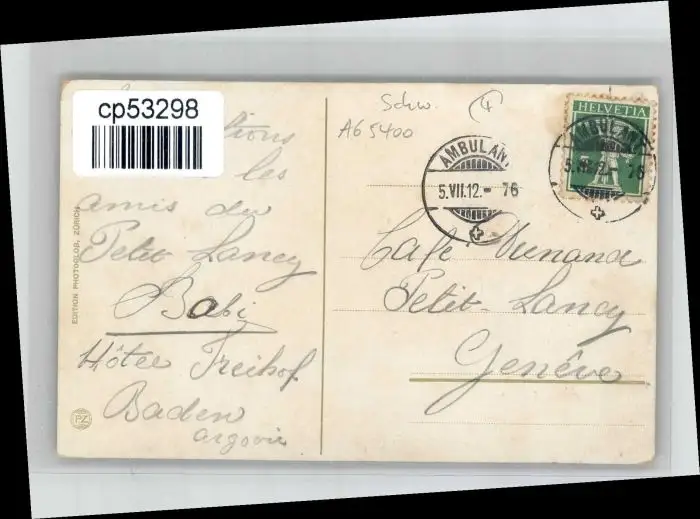 cp53298
les
amis du
Petit Lancy
Babi
Hôtel Freihof
Baden
argovie
EDITION PHOTOGLOB, ZÜRICH
PZ
Schw. 4
A65400
AMBULAN.
5.VII.12.- 76
HELVETIA
AMBULAN.
5.VII.12.- 76
Café Dunand
Petit-Lancy
Genève